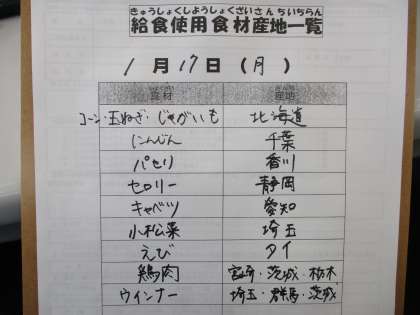 きゅうしょくしようしょくざいさんちいちらん
給食使用食材産地一覧
1月17日(月)
食材 産地
コーン・玉ねぎ・じゃがいも 北海道
にんじん 千葉
パセリ 香川
セロリー 静岡
キャベツ 愛知
小松菜 埼玉
えび タイ
鶏肉 宮崎・茨城・栃木
ウインナー 埼玉・群馬・茨城